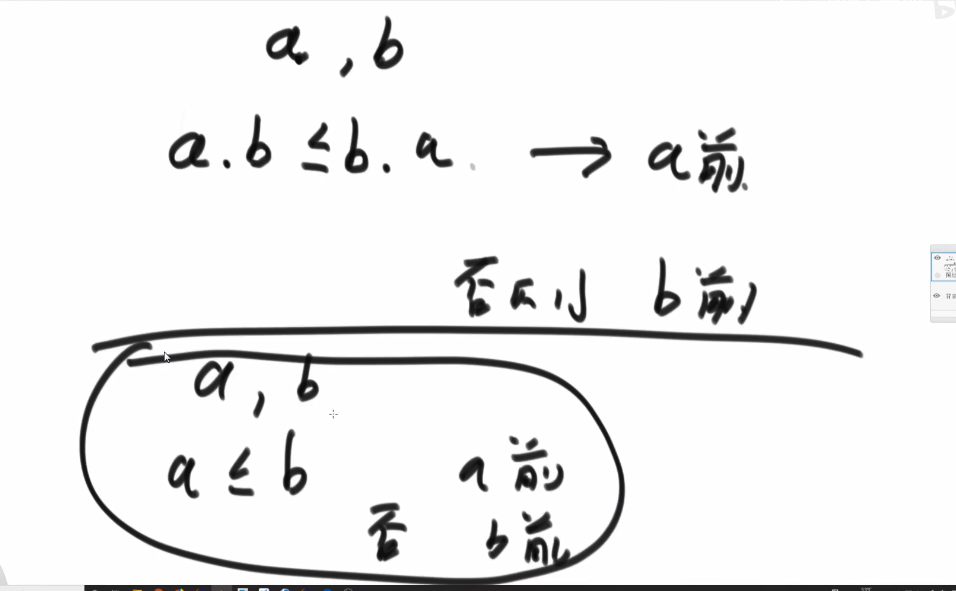 a , b
a . b ≤ b . a . → a前
否则 b前
a , b
a ≤ b a前
否 b前